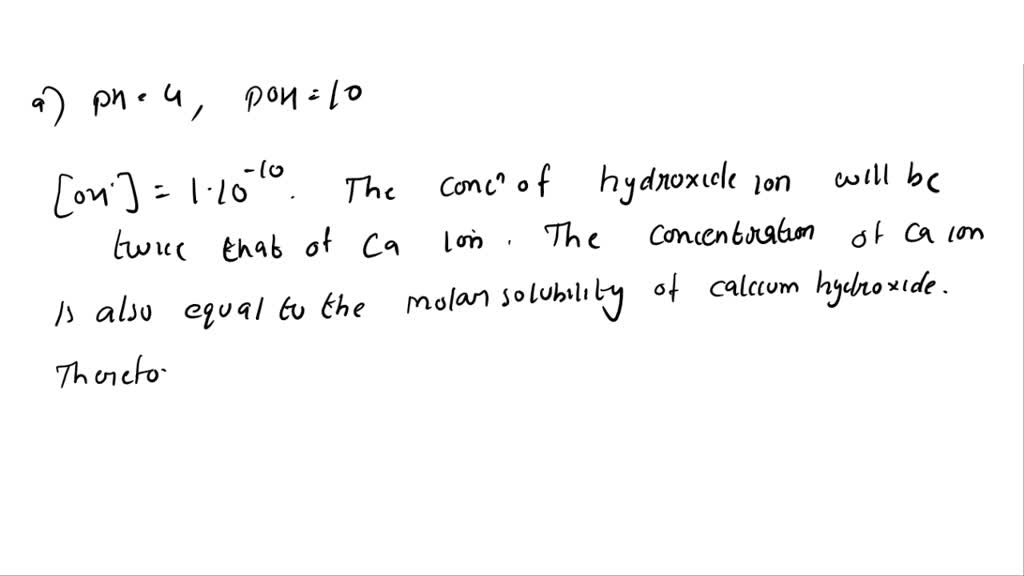 a) pH = 4, pOH = 10
[OH⁻] = 1·10⁻¹⁰. The concⁿ of hydroxide ion will be
twice that of Ca ion. The concentration of Ca ion
is also equal to the molar solubility of calcium hydroxide.
Therefo